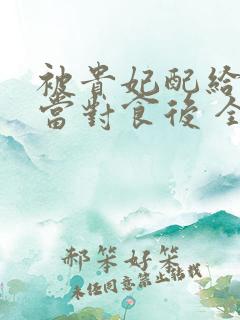 被貴妃配給
當對食後 全
郝笨好笨
未經同意禁止轉載